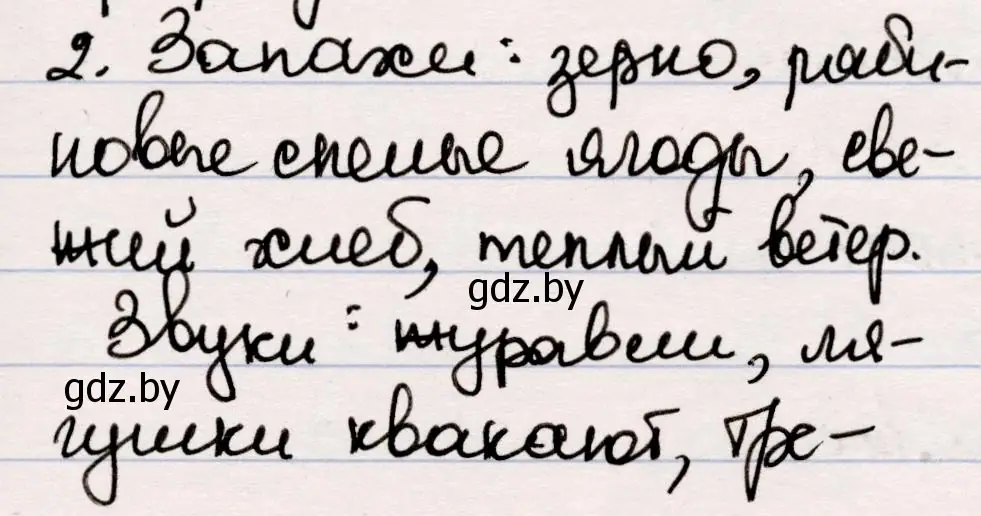 2. Запахи: зерно, ряби-
новые спелые ягоды, све-
жий хлеб, теплый ветер.
gdz.by
Звуки: журавли, ля-
gdz.by
гушки квакают, тре-